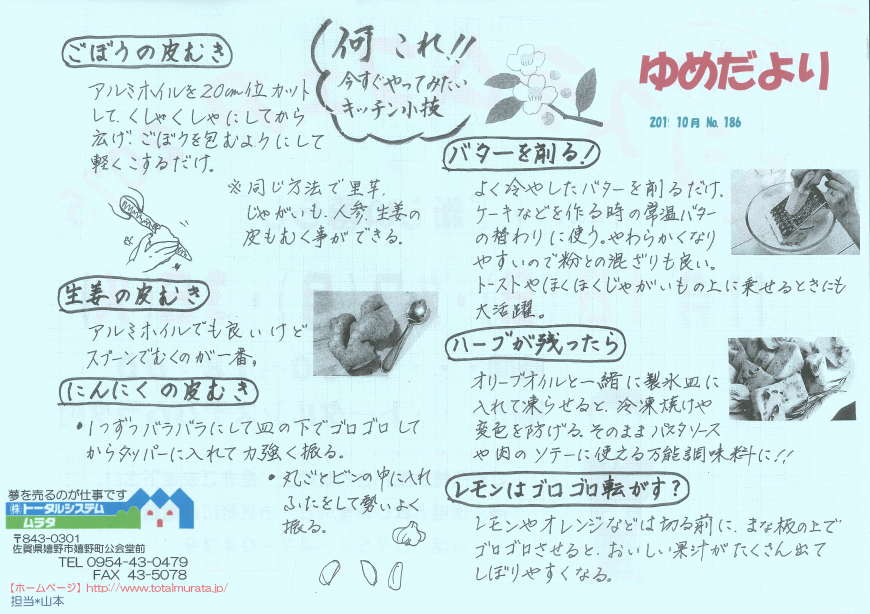 何これ!!
今すぐやってみたい
キッチン小技
ゆめだより
10月 No. 186
ごぼうの皮むき
アルミホイルを20cm位カット
して、くしゃくしゃにしてから
広げ、ごぼうを包むようにして
軽くこするだけ。
※同じ方法で里芋、
じゃがいも、人参、生姜の
皮もむく事ができる。
生姜の皮むき
アルミホイルでも良いけど
スプーンでむくのが一番。
にんにくの皮むき
・1つずつバラバラにして皿の下でゴロゴロして
からタッパーに入れて力強く振る。
・丸ごとビンの中に入れ
ふたをして勢いよく
振る。
バターを削る!
よく冷やしたバターを削るだけ、
ケーキなどを作る時の常温バター
の替わりに使う。やわらかくなり
やすいので粉との混ざりも良い。
トーストやほくほくじゃがいもの上に乗せるときにも
大活躍。
ハーブが残ったら
オリーブオイルと一緒に製氷皿に
入れて凍らせると、冷凍焼けや
変色を防げる。そのままパスタソース
や肉のソテーに使える万能調味料に!!
レモンはゴロゴロ転がす?
レモンやオレンジなどは切る前に、まな板の上で
ゴロゴロさせると、おいしい果汁がたくさん出て
しぼりやすくなる。
夢を売るのが仕事です
㈱トータルシステム
ムラタ
〒843-0301
佐賀県嬉野市嬉野町公会堂前
TEL 0954-43-0479
FAX 43-5078
【ホームページ】http://www.totalmurata.jp/
担当*山本